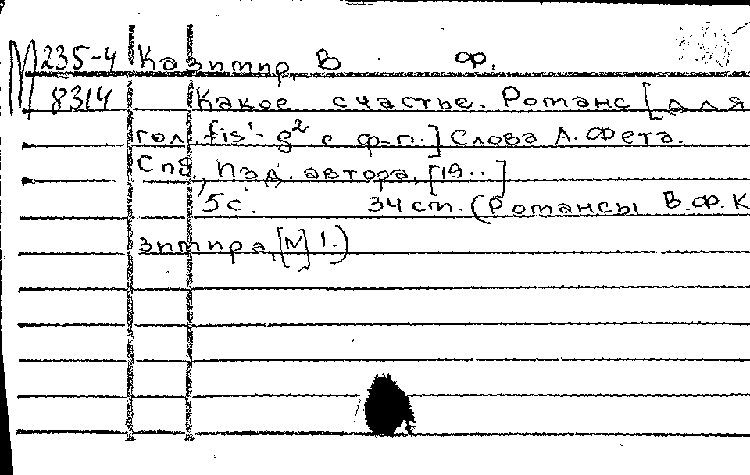 М 235-4 Казимир, В. Ф.
8314 Какое счастье. Романс [для
гол. fis¹- g² с ф-п.] Слова А. Фета.
Спб, Изд. автора, [19..]
5 с. 34 см. (Романсы В.Ф. К
зимира, [N] 1.)